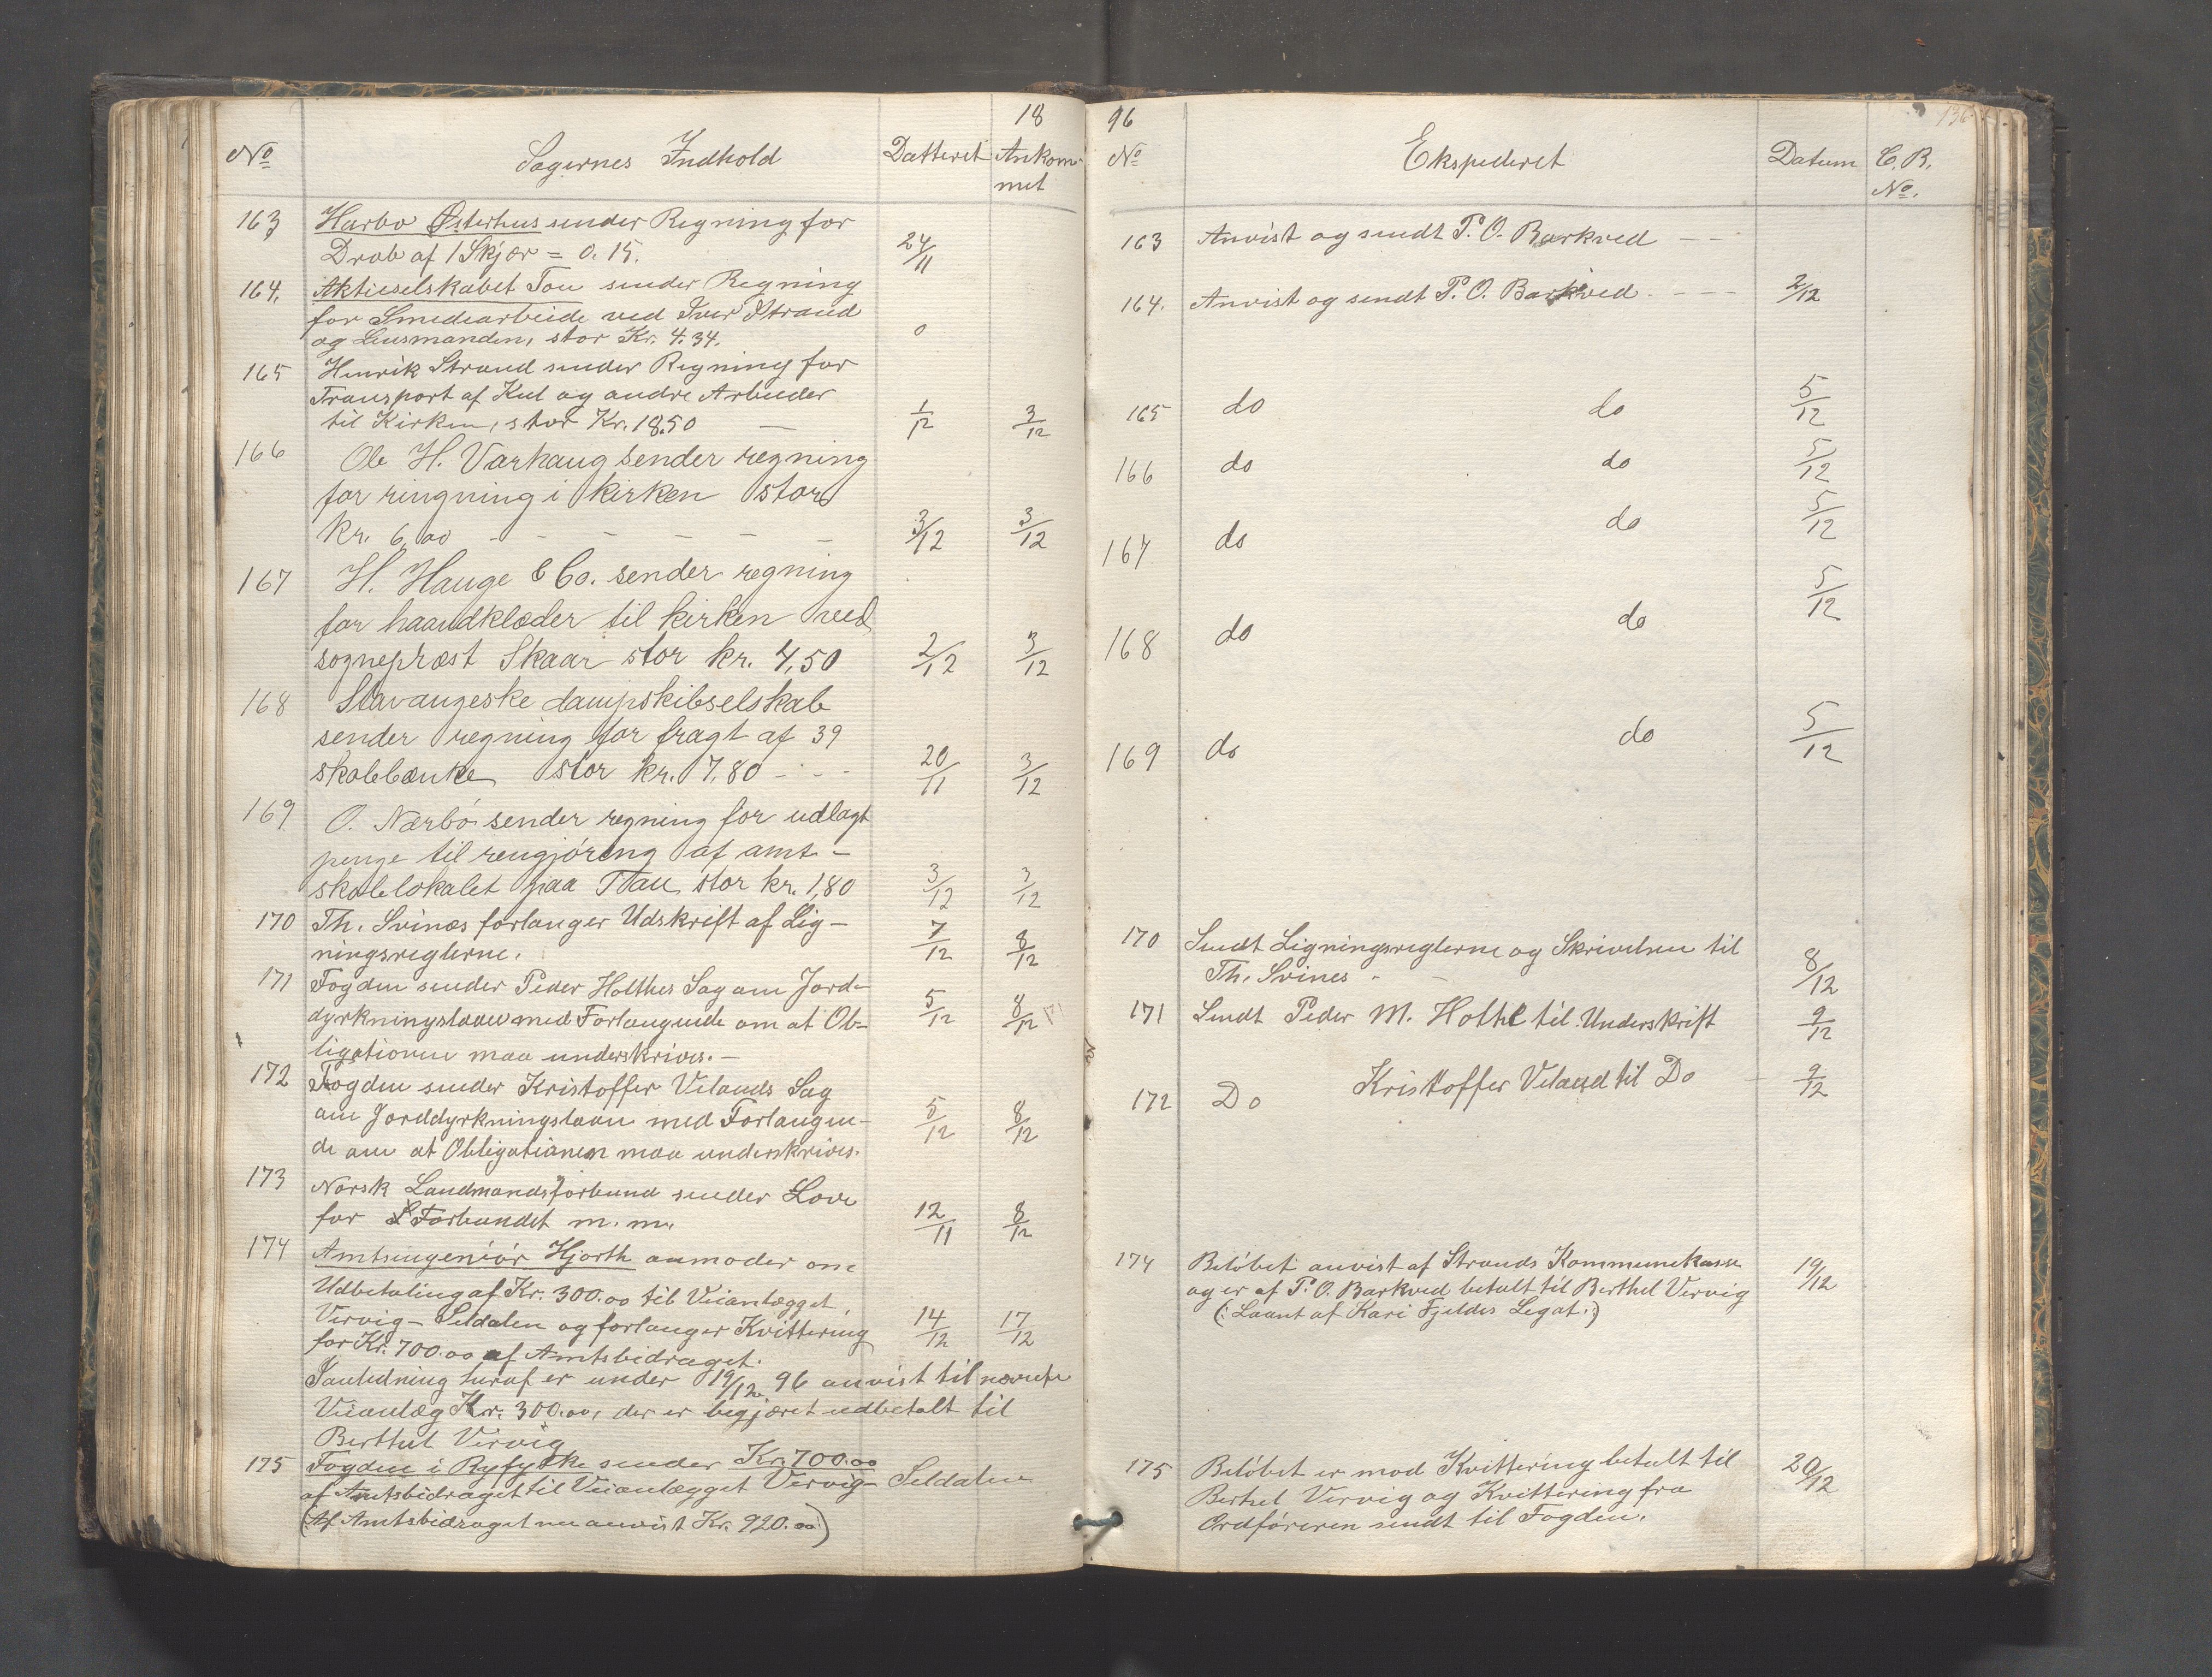 18
No Sagernes Indhold Datteret Ankommet
163 Harbo Østerhus sender Regning for
Drab af 1 Skjær = 0.15. 24/11
164. Aktieselskabet Tou sender Regning
for Smediearbeide ved Iver Strand
og Lensmanden, stor Kr. 4.34. 0
165 Henrik Strand sender Regning for
Transport af Kul og andre Arbeider
til Kirken, stor Kr. 18.50 — 1/12 3/12
166 Ole H. Varhaug sender regning
for ringning i kirken stor
kr. 6,00 - - - - - - 3/12 3/12
167 H. Hauge & Co. sender regning
for haandklæder til kirken ved
sognepræst Skaar stor kr. 4,50 2/12 3/12
168 Stavangeske dampskibselskab
sender regning for fragt af 39
skolebænke stor kr. 7,80 - - - 20/11 3/12
169 O. Nærbö sender regning for udlagt
penge til rengjöring af amt-
skolelokalet paa Tau stor kr. 1,80 3/12 3/12
170 Th. Svines forlanger Udskrift af Lig-
ningsreglerne. 7/12 8/12
171 Fogden sender Peder Holthes Sag om Jord-
dyrkningslaan med Forlangende om at Ob- 5/12 8/12
ligationen maa underskrives. —
172 Fogden sender Kristoffer Velands Sag
om Jorddyrkningslaan med Forlangen- 5/12 8/12
de om at Obligationen maa underskrives.
173 Norsk Landmandsforbund sender Love
for Forbundet m. m. 12/11 8/12
174 Amtsingeniör Hjorth anmoder om
Udbetaling af Kr. 300.00 til Veianlægget
Vervig - Seldalen og forlanger Kvittering 14/12 17/12
for Kr. 700.00 af Amtsbidraget.
I anledning heraf er under 19/12 96 anvist til nævnte
Veianlæg Kr. 300.00, der er begjæret udbetalt til
Berthel Vervig
175 Fogden i Ryfylke sender Kr. 700.00
af Amtsbidraget til Veianlægget Vervig - Seldalen
(Af Amtsbidraget nu anvist Kr. 920.00)
96 136
No Ekspederet Datum C. R. No.
163 Anvist og sendt P. O. Barkved — —
164. Anvist og sendt P. O. Barkved - — — 2/12
165 do do 5/12
166 do do 5/12
167 do do 5/12
168 do do 5/12
169 do do 5/12
170 Sendt Ligningsreglerne og Skrivelsen til
Th. Svines - — 8/12
171 Sendt Peder M. Holthe til Underskrift 9/12
172 Do Kristoffer Veland til Do — 9/12
174 Belöbet anvist af Strands Kommunekasse 19/12
og er af P. O. Barkved betalt til Berthel Vervig
(: Laant af Kari Fjeldes Legat :)
175 Belöbet er mod Kvittering betalt til 20/12
Berthel Vervig og Kvittering fra
Ordföreren sendt til Fogden.